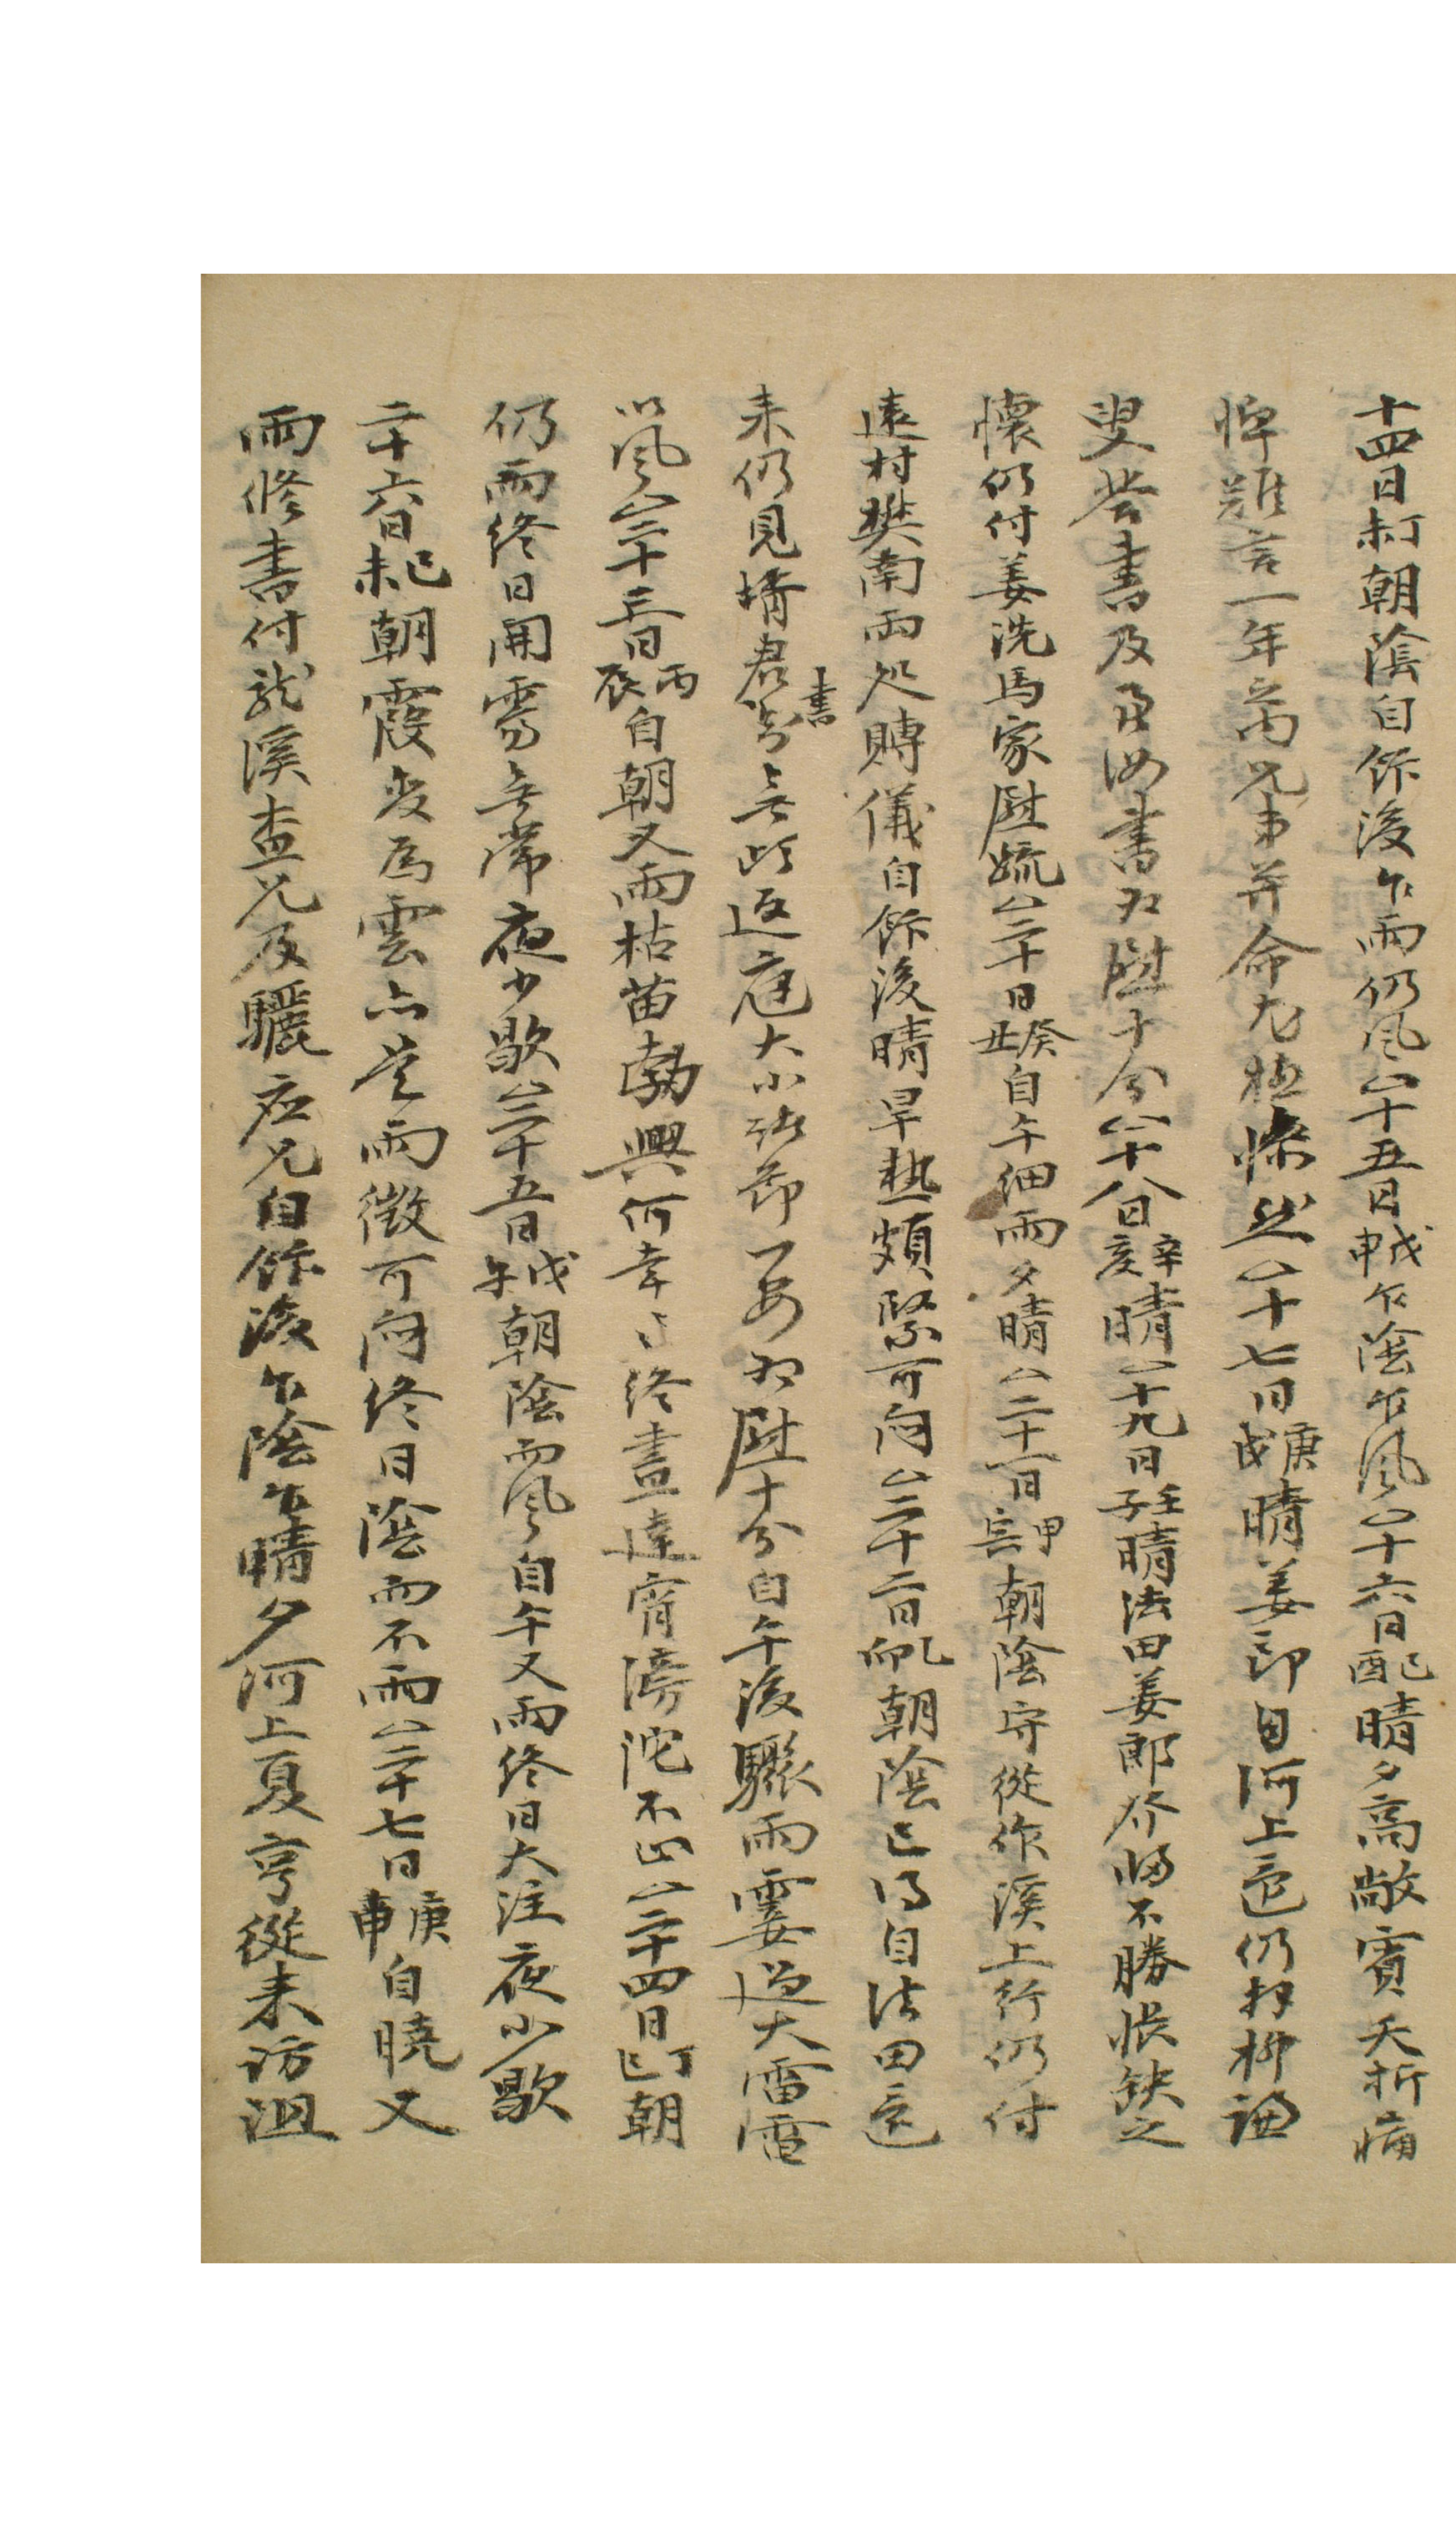 十四日丁未朝陰自飯後乍雨仍風△十五日戊申乍陰乍風△十六日己酉晴夕高敞賓夭折痛
悼難言一年內兄弟并命尤極慘然△十七日庚戌晴姜郎自河上還仍抒柳謙
叟答書及兒汝書为慰十分△十八日辛亥晴△十九日壬子晴法田姜郎告歸不勝悵缺之
懷仍付姜洗馬家慰疏△二十日癸丑自午細雨夕晴△二十一日甲寅朝陰守從作溪上行仍付
遠村樊南兩处賻儀自飯後晴旱熱頗緊可悶△二十二日乙卯朝陰已得自法田還
来仍見壻君書無頉返庭大小諸節一安为慰十分自午後驟雨霎過大雷電
以風△二十三日丙辰自朝又雨枯苗勃興何幸〻終晝達宵滂沱不止△二十四日丁巳朝
仍雨終日開霽無常夜少歇△二十五日戊午朝陰而風自午又雨終日大注夜少歇
二十六日己未朝霞变爲雲亦是雨徵可悶終日陰而不雨△二十七日庚申自曉又
雨修書付龍溪査兄及驪應兄自飯後乍陰乍晴夕河上夏亨從来訪沮